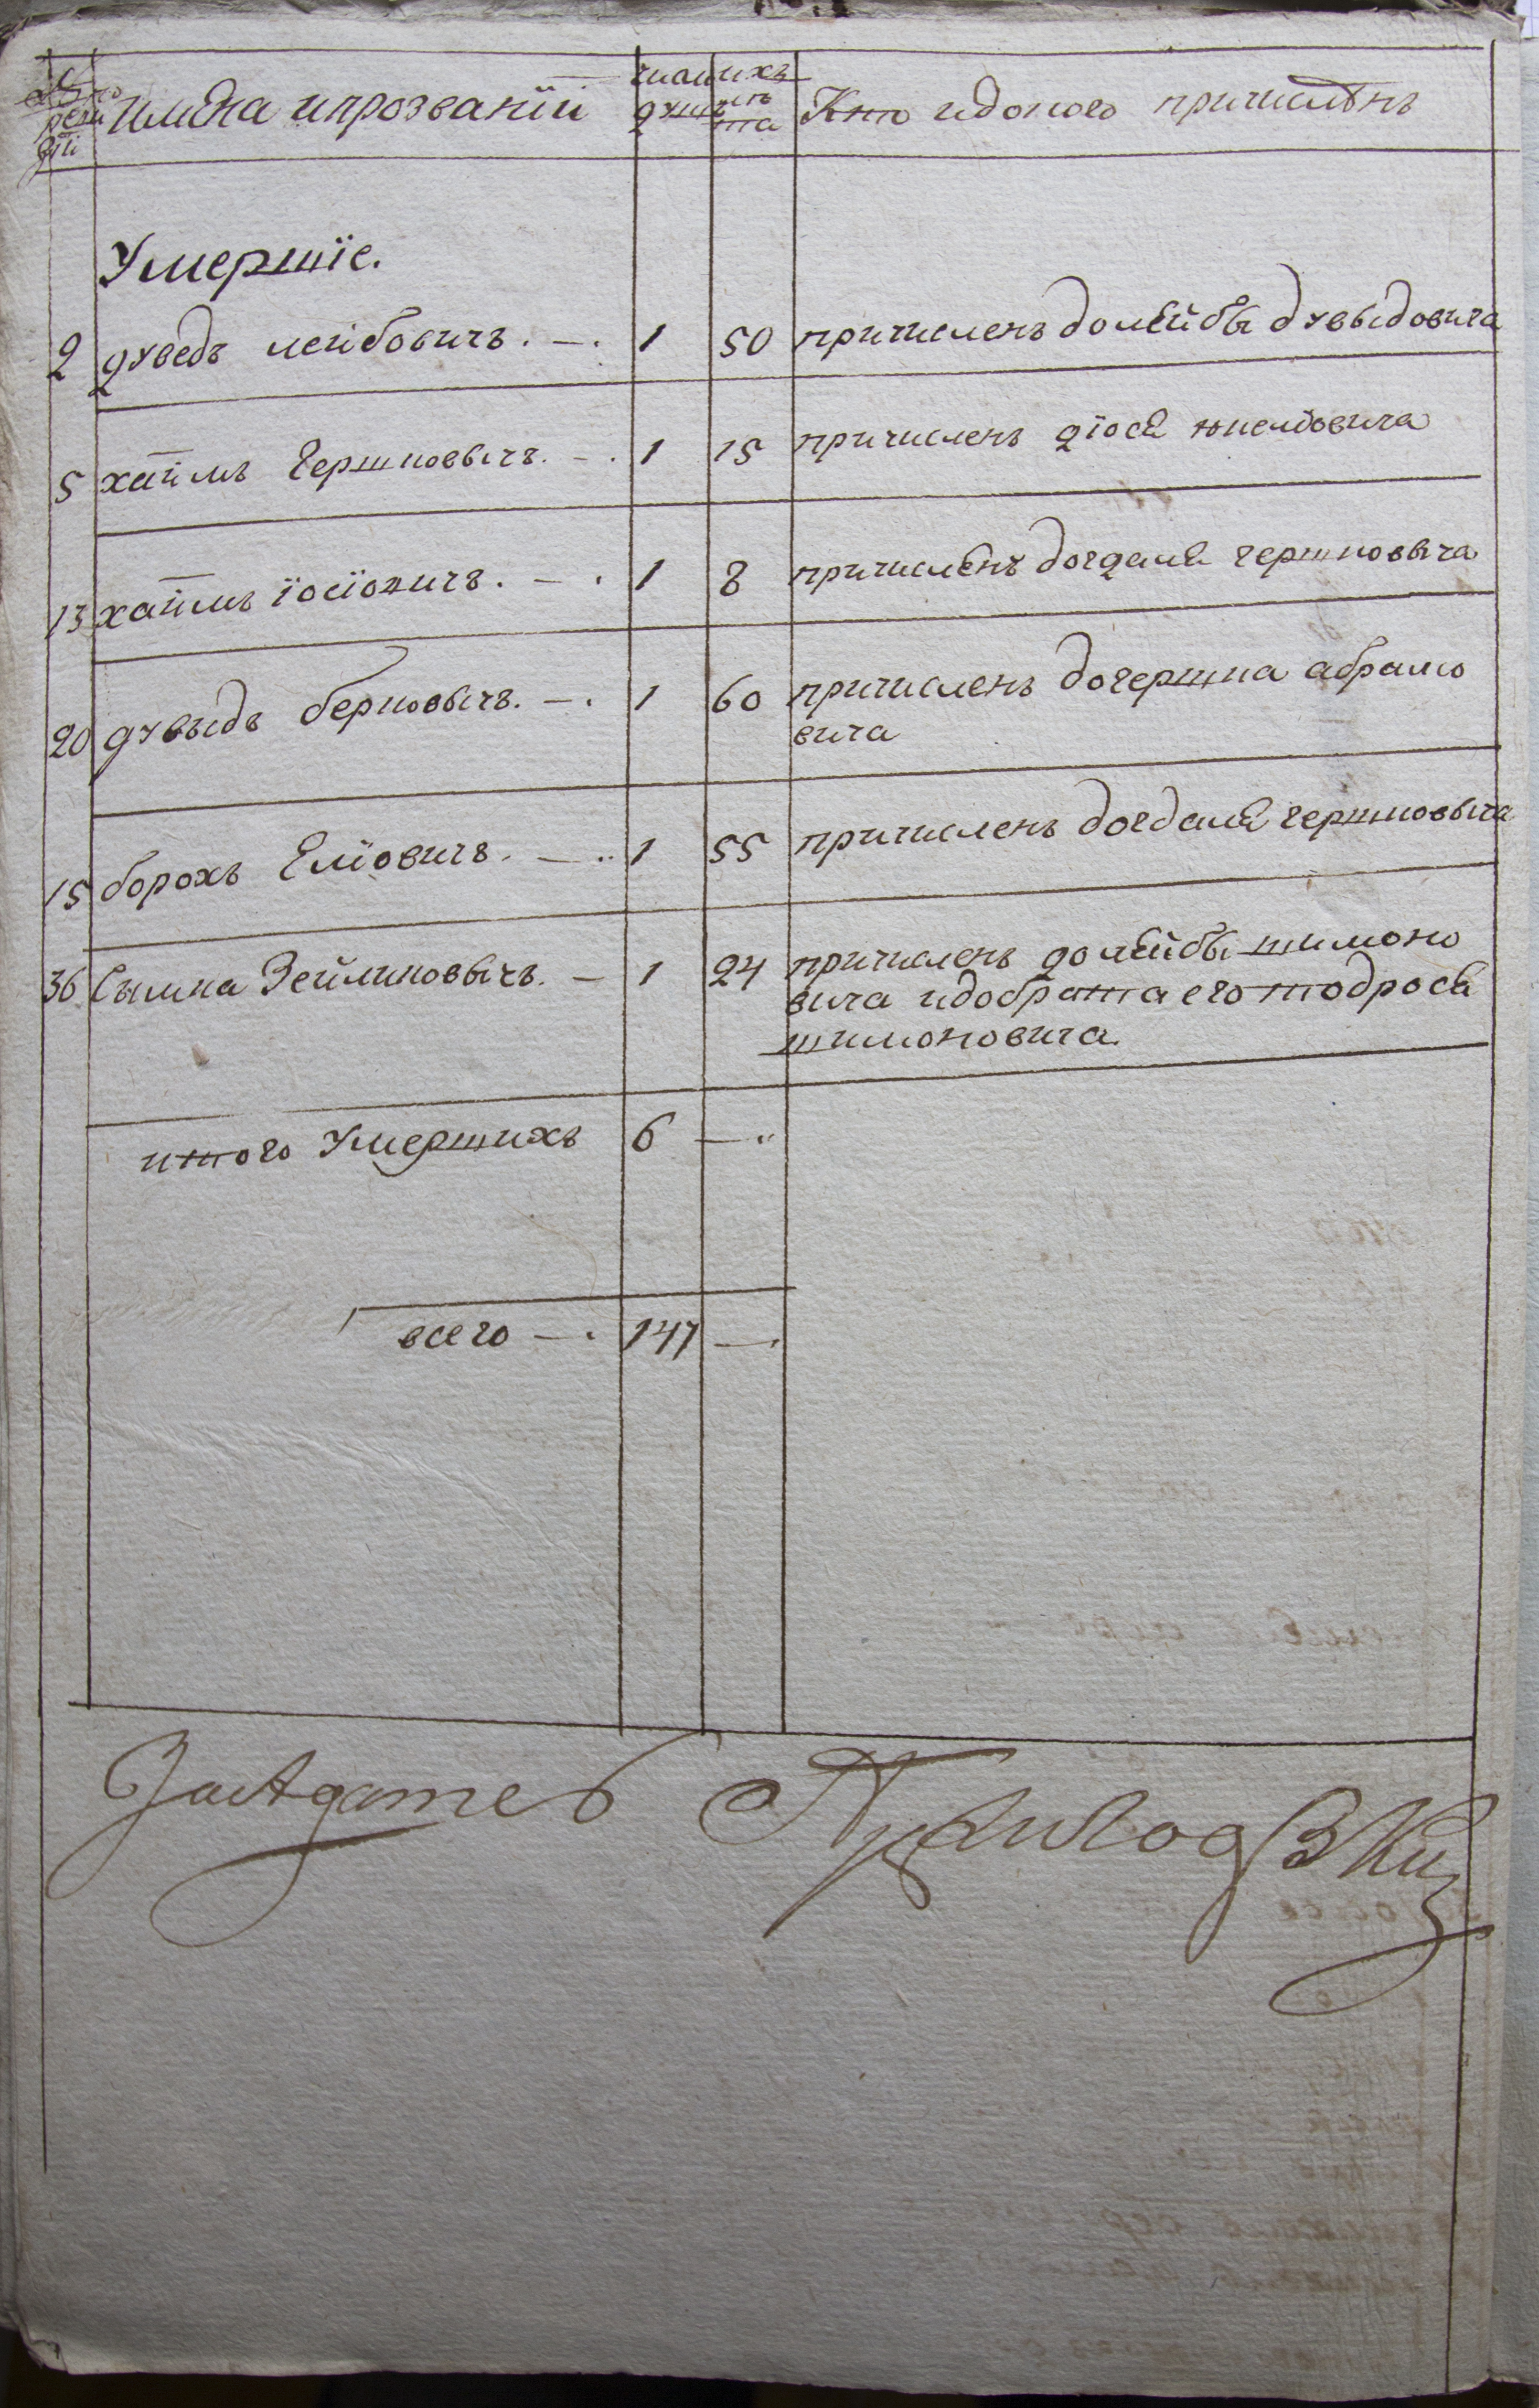 № по реви зїи имена и прозванїи число душъ ихъ лѣта Кто и до кого причисленъ
Умершїе.
2 дуведъ лейбовичъ. —. 1 50 причисленъ до лейбы дувыдовича
5 хаимъ гершковычъ. —. 1 15 причисленъ
13 хаимъ їосїовичъ. —. 1 8 причисленъ до гдалѣ гершковыча
20 дувыдъ берковычъ. —. 1 60 причисленъ до гершка абрамо
вича
15 борохъ Елїовичъ. —.. 1 55 причисленъ до гдалѣ гершковыча
36 Сымха Зейликовычъ. — 1 24 причисленъ до лейбы шимоно
вича и до брата его тодроса
шимоновича.
итого Умершихъ 6 —..
всего —. 147 —.
Засѣдатель